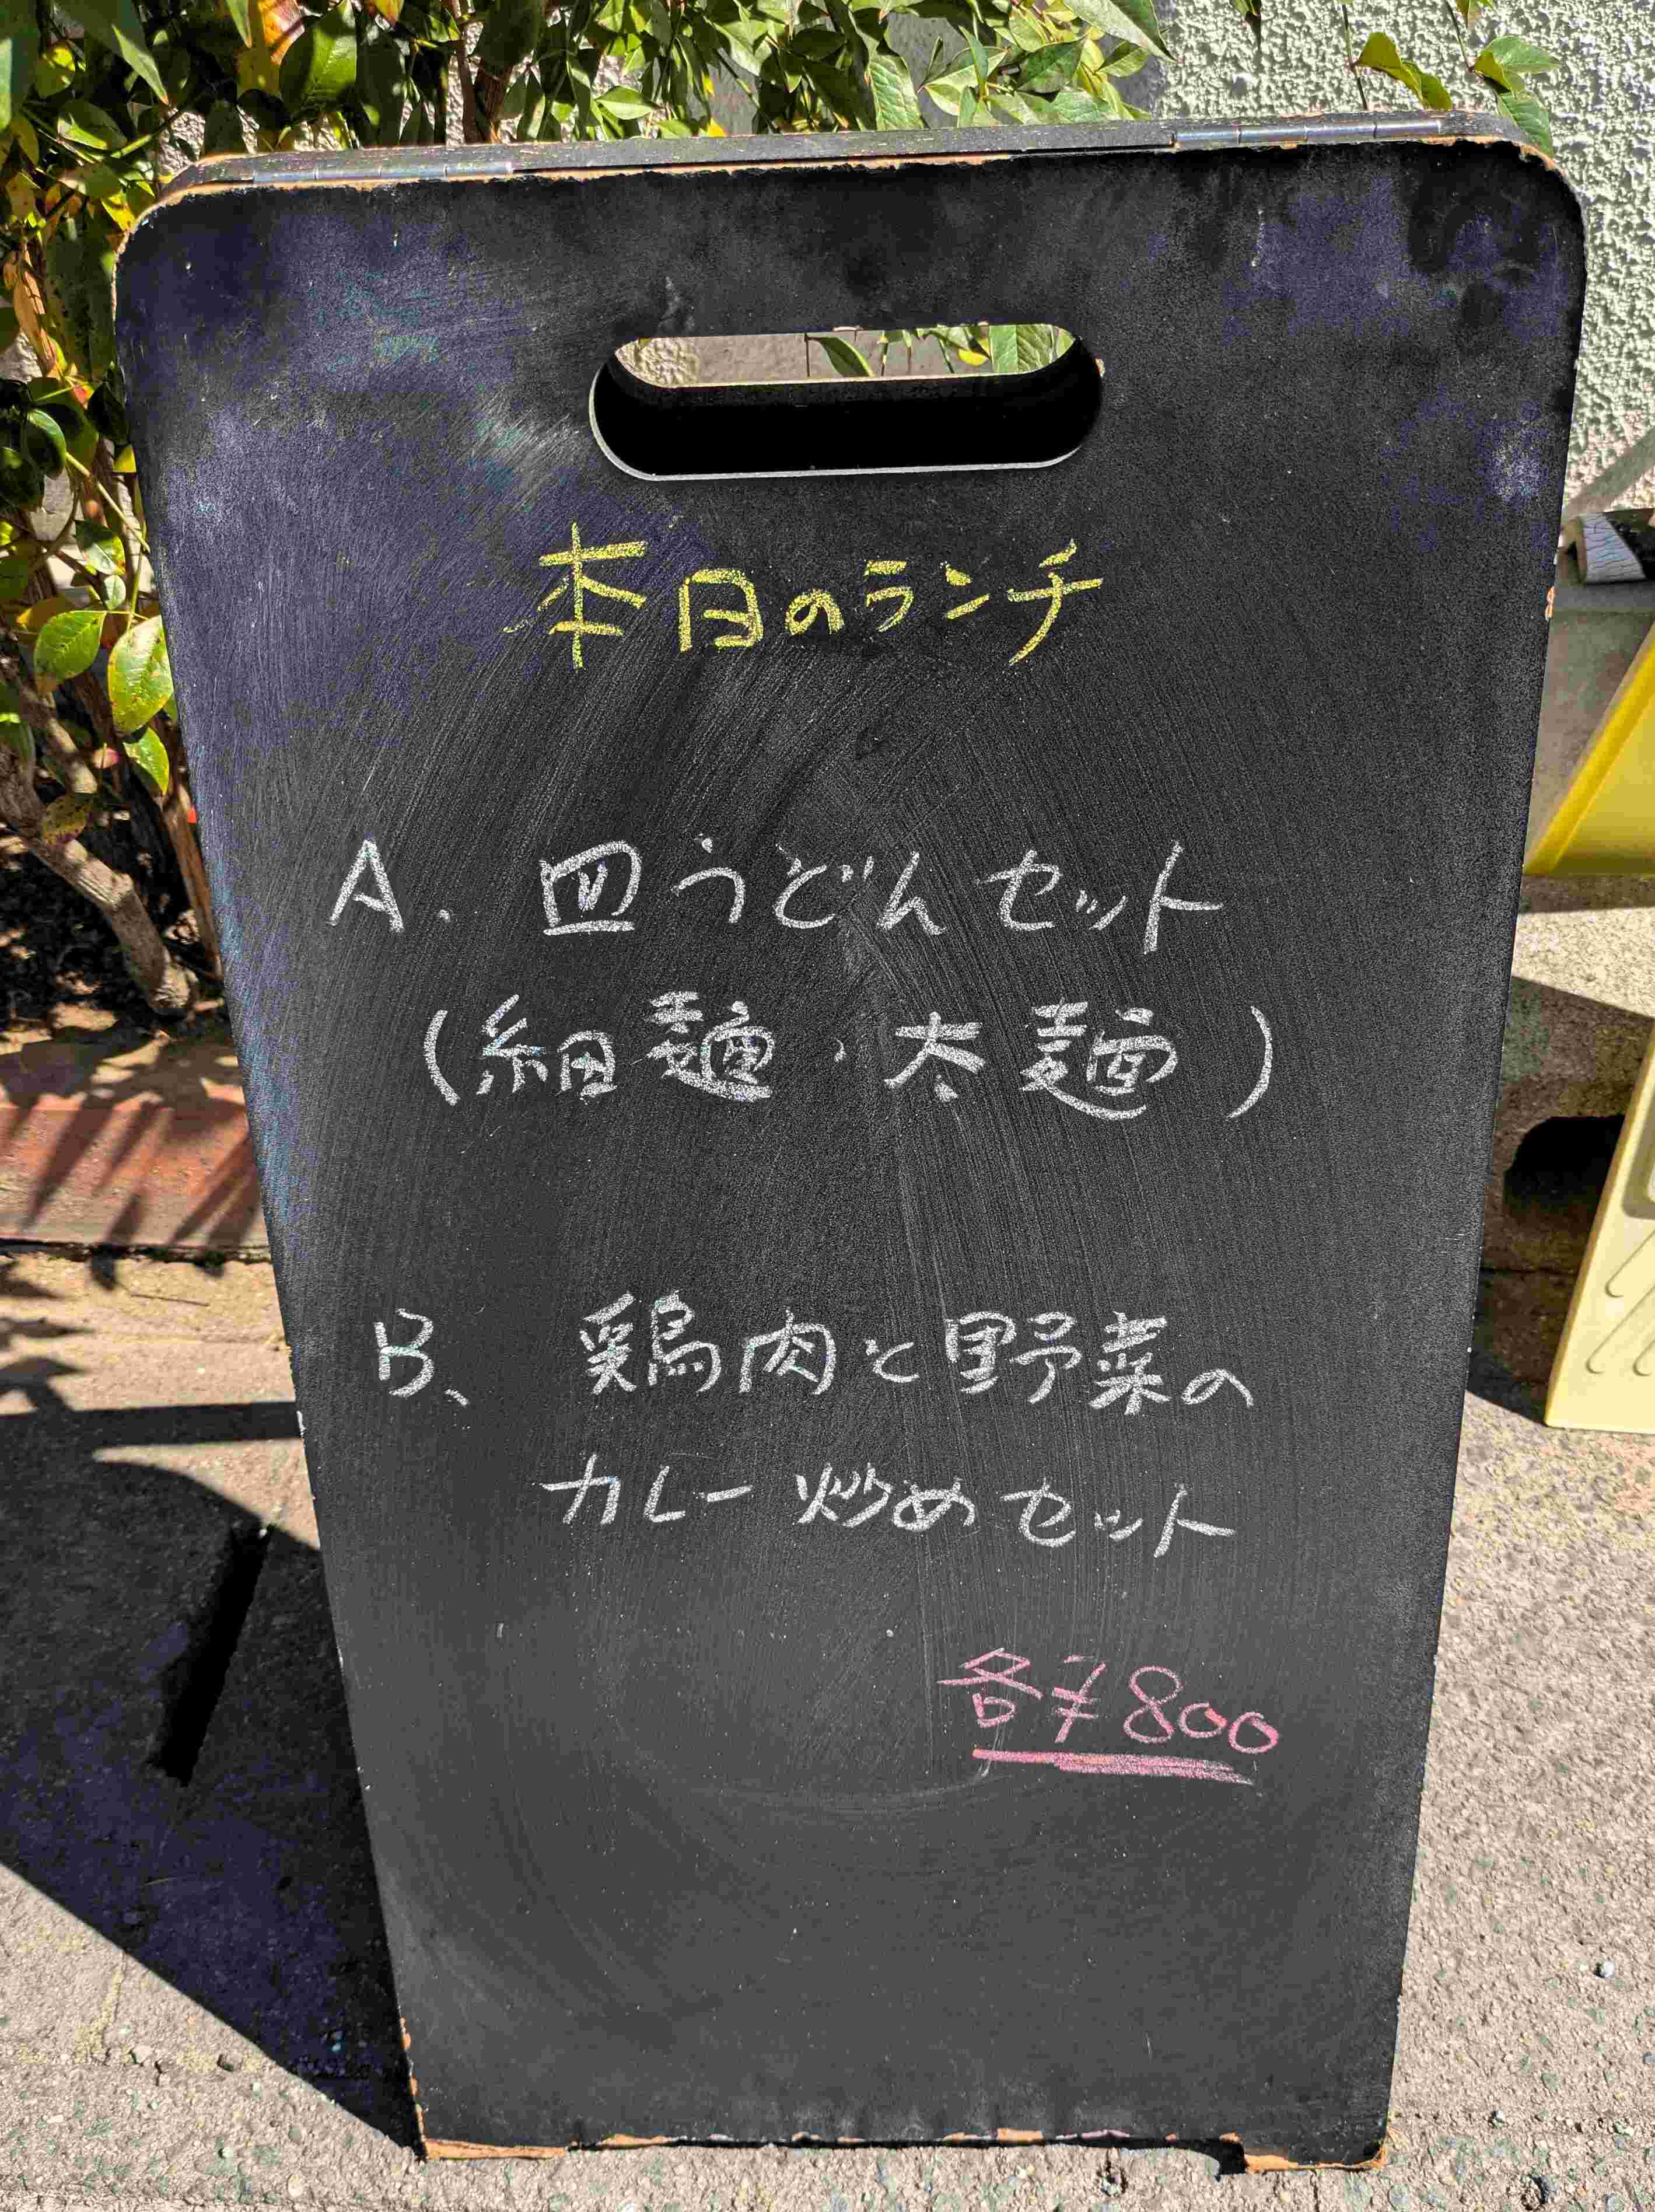 本日のランチ
A. 皿うどんセット
(細麺・太麺)
B、 鶏肉と野菜の
カレー炒めセット
各¥800